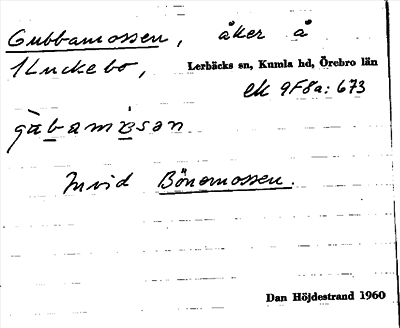 Gubbamossen, åker å
1 Luckebo, Lerbäcks sn, Kumla hd, Örebro län
ek 9F8a: 673
Invid Bönemossen.
Dan Höjdestrand 1960